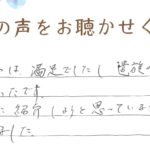 の声をお聴かせく
は、満足でしたし
ったです。
紹介しようと思っている
ました。